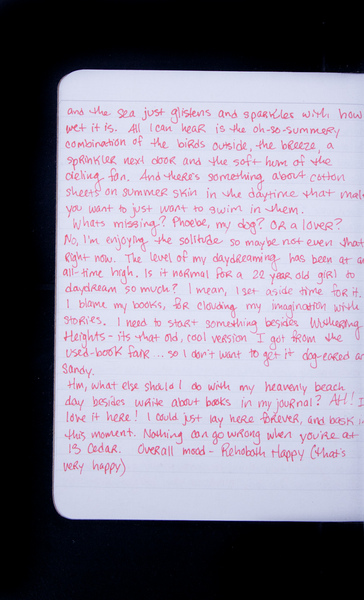 and the sea just glistens and sparkles with how
wet it is. All I can hear is the oh-so-summery
combination of the birds outside, the breeze, a
sprinkler next door and the soft hum of the
cieling fan. And there's something about cotton
sheets on summer skin in the daytime that
you want to just want to swim in them.
Whats missing? Phoebe, my dog? OR a lover?
No, I'm enjoying the solitude so maybe not even that
right now. The level of my daydreaming has been at
all-time high. Is it normal for a 22 year old girl to
daydream so much? I mean, I set aside time for it.
I blame my books, for clouding my imagination with
stories. I need to start something besides Wuthering
Heights - its that old, cool version I got from the
used-book fair... so I don't want to get it dog-eared
Sandy.
Hm, what else should I do with my heavenly beach
day besides write about books in my journal? AH! I
love it here! I could just lay here forever, and bask in
this moment. Nothing can go wrong when you're at
13 Cedar. Overall mood - Rehoboth Happy (that's
very happy)